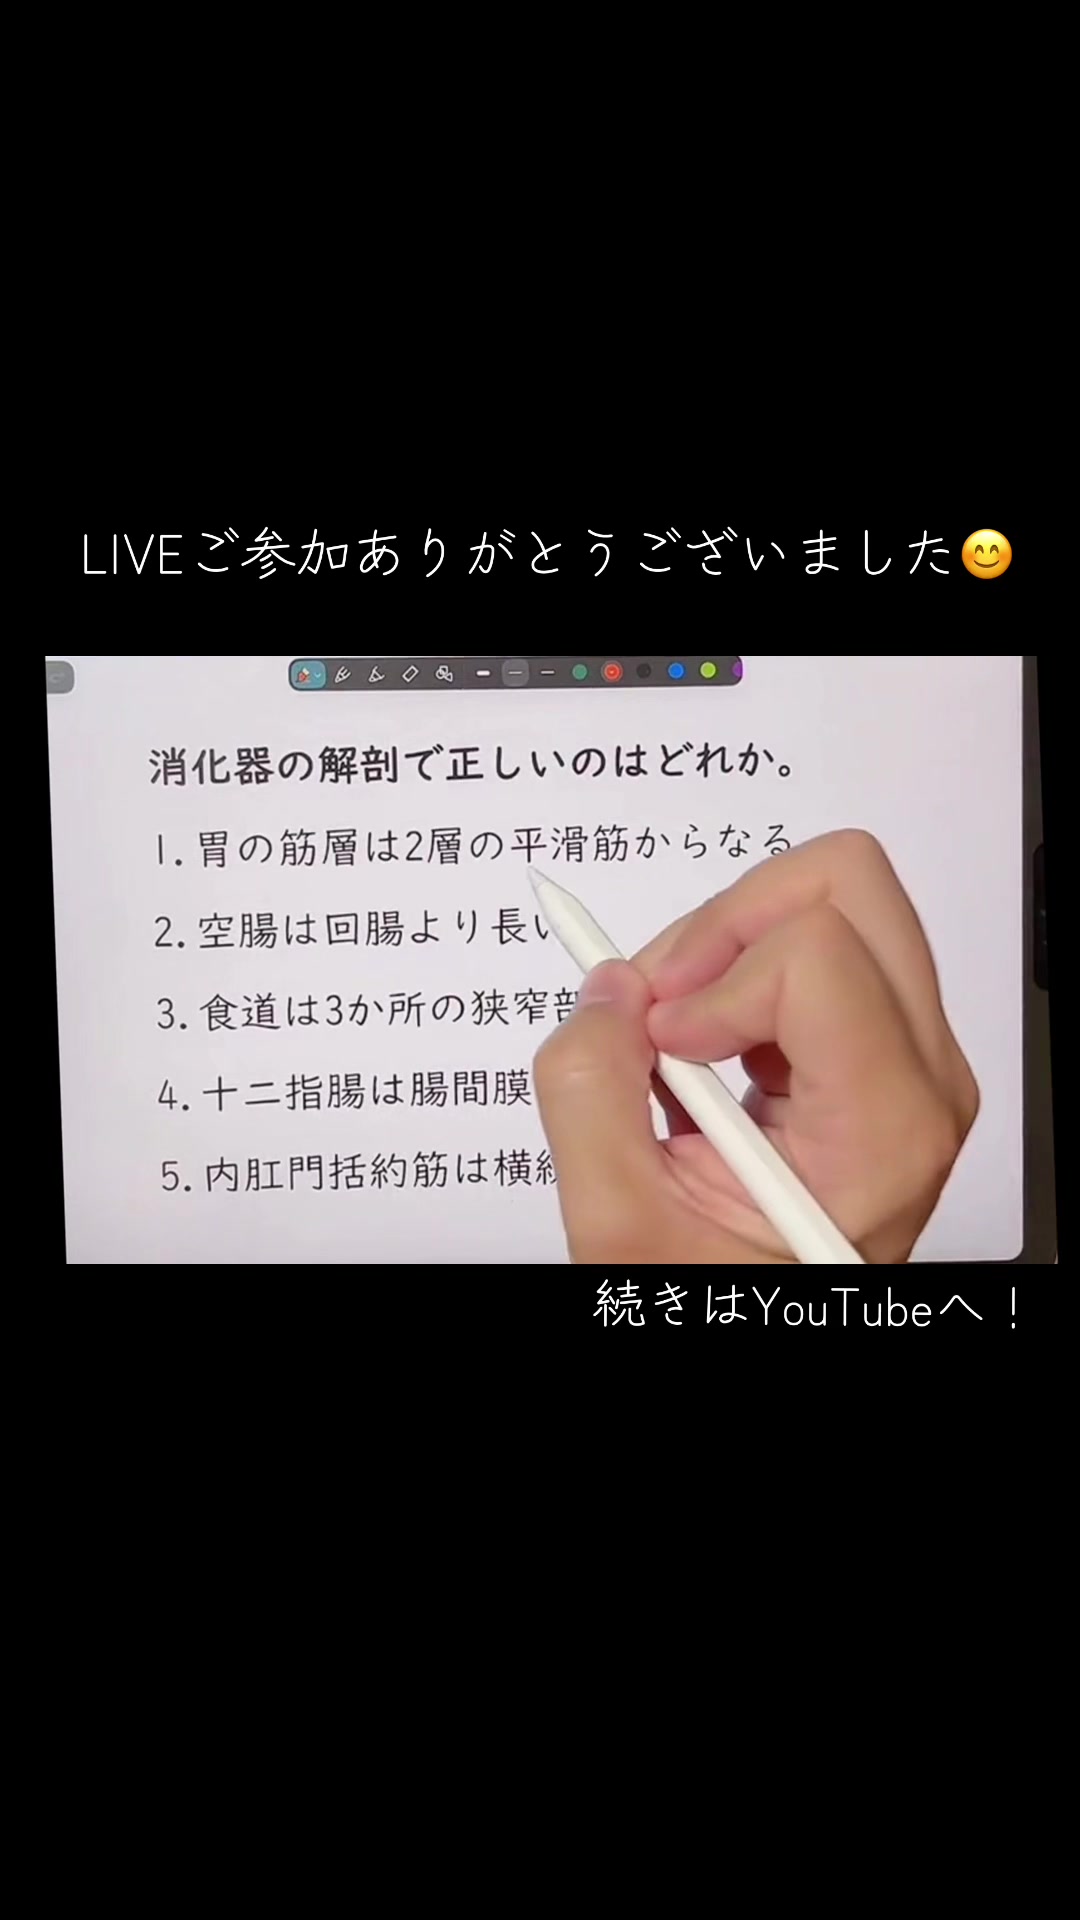 LIVEご参加ありがとうございました😊
消化器の解剖で正しいのはどれか。
1. 胃の筋層は2層の平滑筋からなる
2. 空腸は回腸より長い
3. 食道は3か所の狭窄部
4. 十二指腸は腸間膜
5. 内肛門括約筋は横
続きはYouTubeへ！